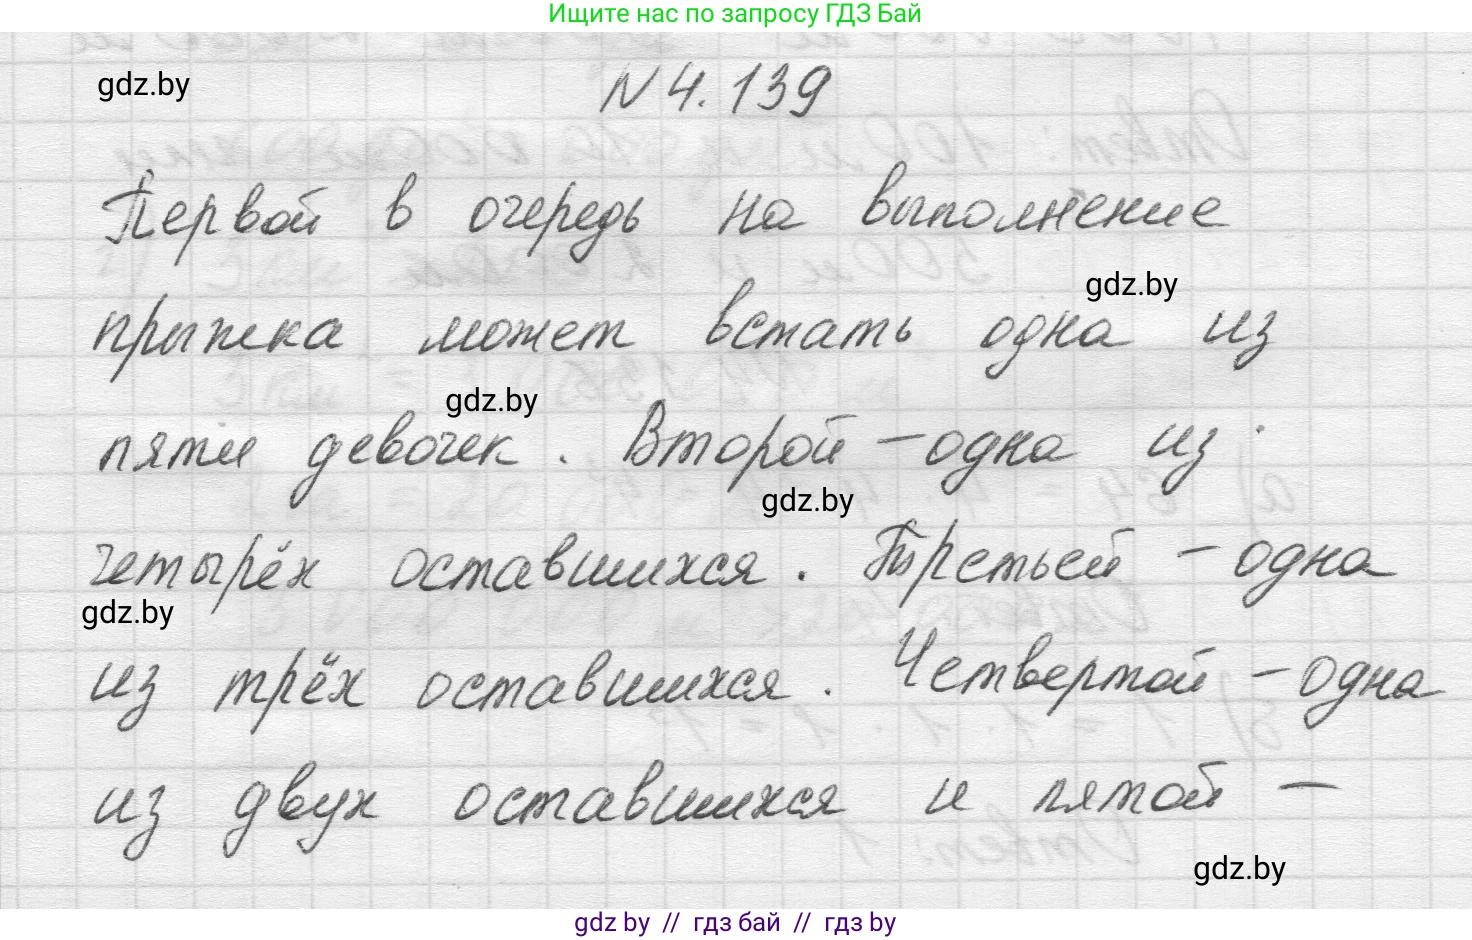 Ищите нас по запросу ГДЗ Бай
gdz.by
N 4.139
Первой в очередь на выполнение
gdz.by
прыжка может встать одна из
gdz.by
пяти девочек. Второй – одна из
gdz.by
четырёх оставшихся. Третьей – одна
gdz.by
из трёх оставшихся. Четвертой – одна
из двух оставшихся и пятой –
gdz.by
gdz by // гдз бай // гдз by